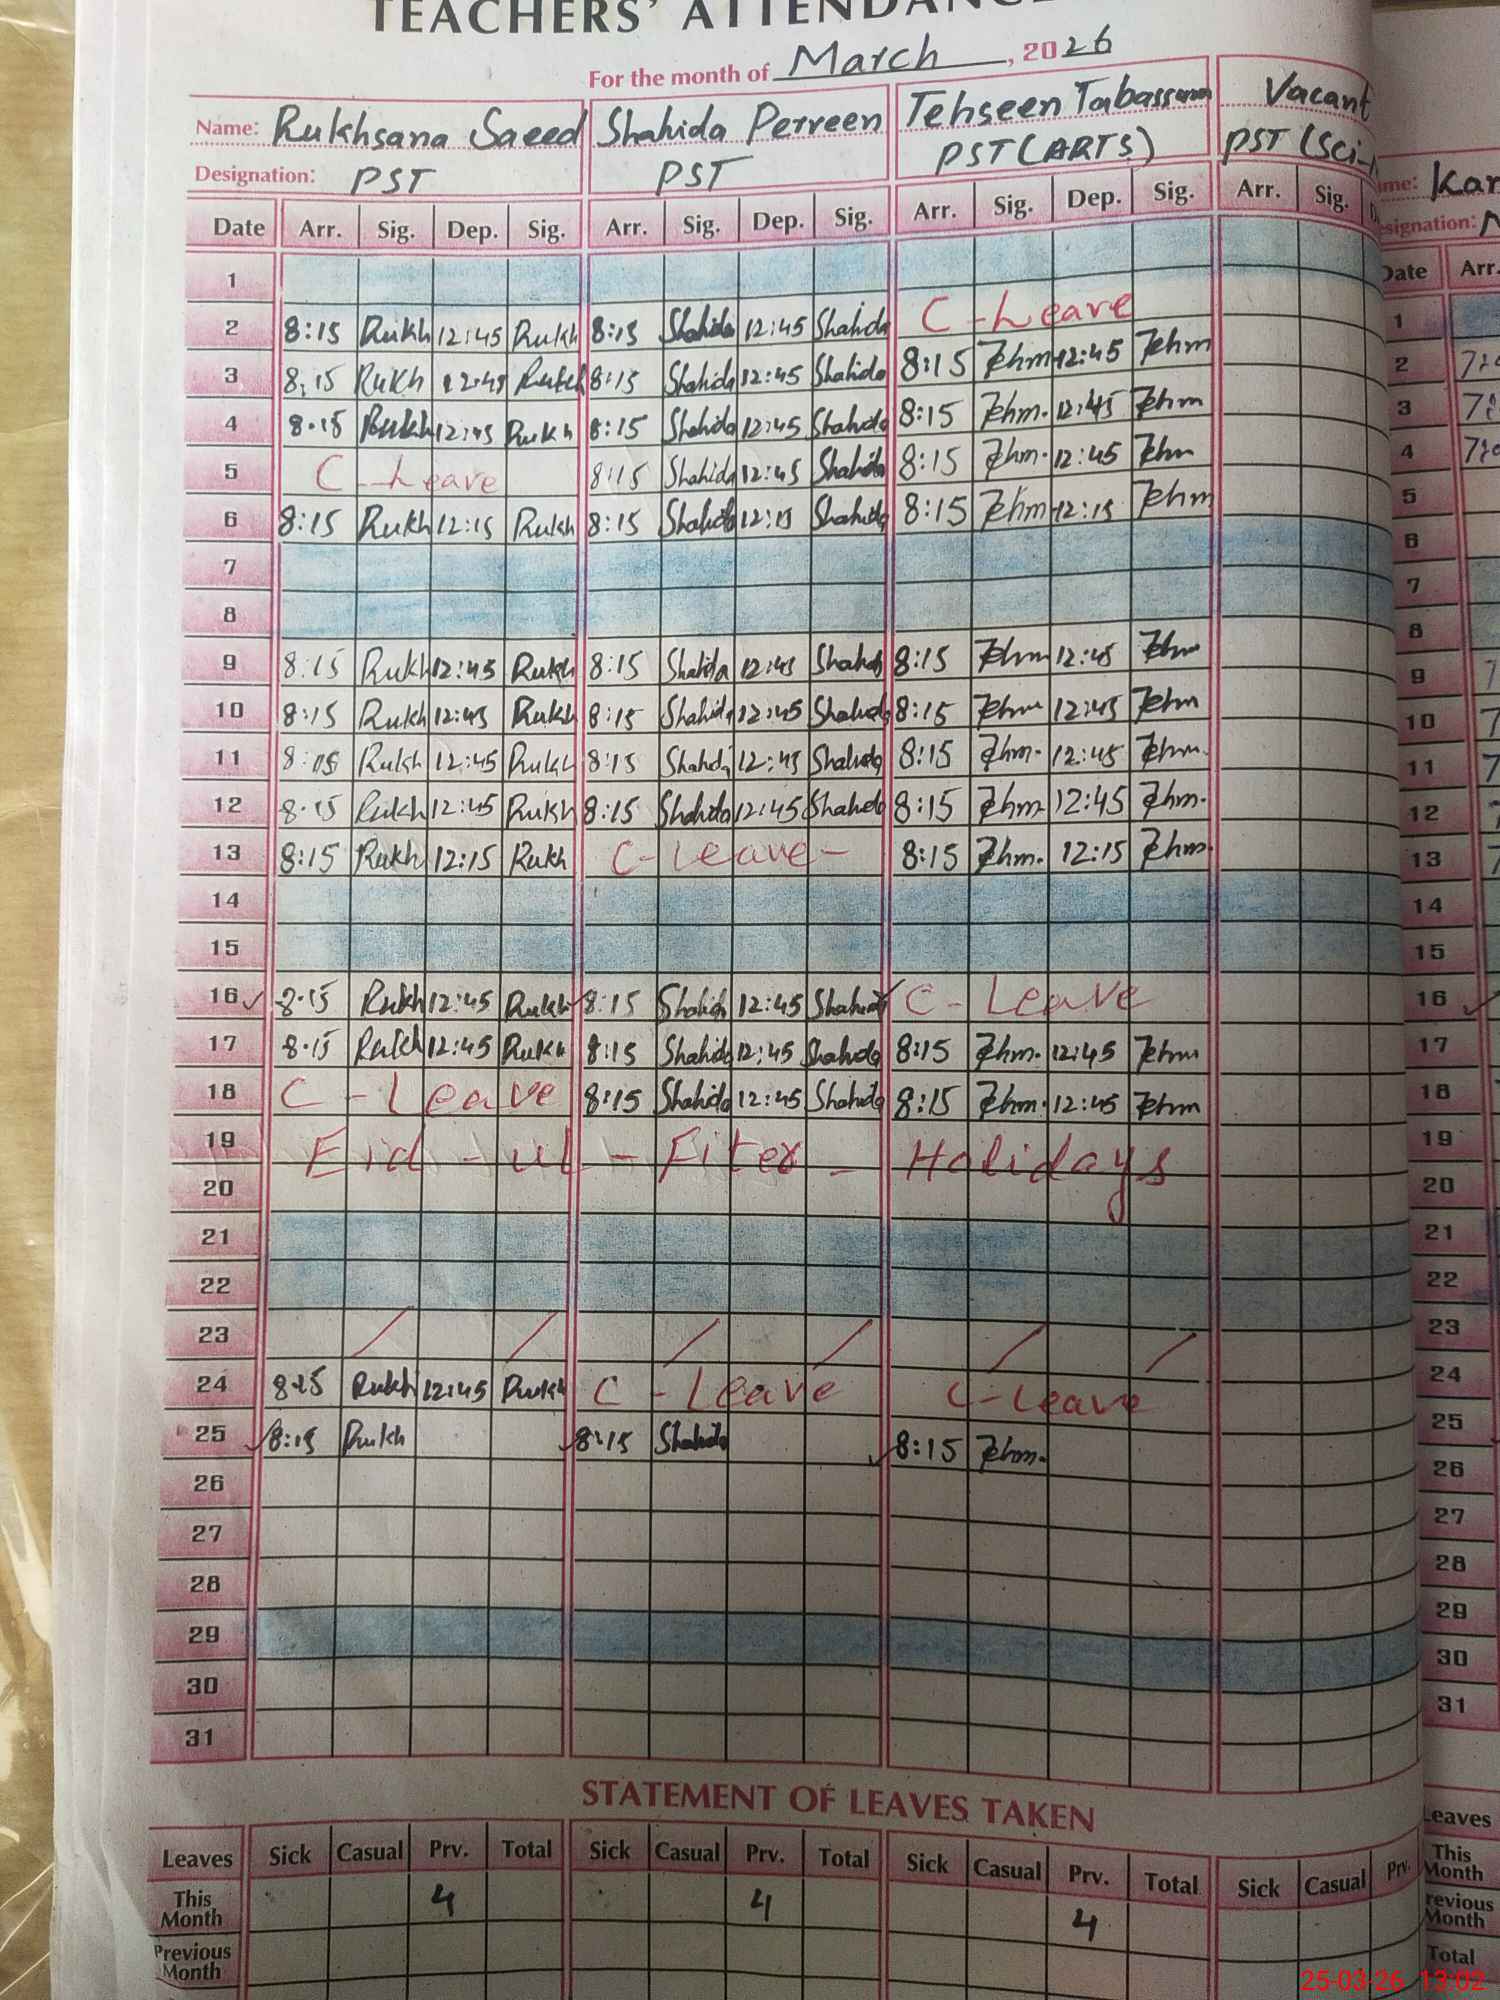 TEACHERS' ATTENDANC
For the month of March, 2026
Name: Rukhsana Saeed Shahida Perveen Tehseen Tabassum Vacant
Designation: PST PST PST (ARTS) PST (Sci-
Date Arr. Sig. Dep. Sig. Arr. Sig. Dep. Sig. Arr. Sig. Dep. Sig. Arr. Sig.
1
2 8:15 Rukh 12:45 Rukh 8:15 Shahida 12:45 Shahida C-Leave
3 8:15 Rukh 12:45 Rukh 8:15 Shahida 12:45 Shahida 8:15 Tehm 12:45 Tehm
4 8:15 Rukh 12:45 Rukh 8:15 Shahida 12:45 Shahida 8:15 Tehm. 12:45 Tehm
5 C-Leave 8:15 Shahida 12:45 Shahida 8:15 Tehm. 12:45 Tehm
6 8:15 Rukh 12:15 Rukh 8:15 Shahida 12:15 Shahida 8:15 Tehm 12:15 Tehm
7
8
9 8:15 Rukh 12:45 Rukh 8:15 Shahida 12:45 Shahida 8:15 Tehm 12:45 Tehm
10 8:15 Rukh 12:45 Rukh 8:15 Shahida 12:45 Shahida 8:15 Tehm 12:45 Tehm
11 8:15 Rukh 12:45 Rukh 8:15 Shahida 12:45 Shahida 8:15 Tehm. 12:45 Tehm.
12 8:15 Rukh 12:45 Rukh 8:15 Shahida 12:45 Shahida 8:15 Tehm 12:45 Tehm.
13 8:15 Rukh 12:15 Rukh C-Leave- 8:15 Tehm. 12:15 Tehm.
14
15
16 8:15 Rukh 12:45 Rukh 8:15 Shahida 12:45 Shahida C-Leave
17 8:15 Rukh 12:45 Rukh 8:15 Shahida 12:45 Shahida 8:15 Tehm. 12:45 Tehm
18 C-Leave 8:15 Shahida 12:45 Shahida 8:15 Tehm. 12:45 Tehm
19 Eid-ul-Fiter-Holidays
20
21
22
23
24 8:15 Rukh 12:45 Rukh C-Leave C-Leave
25 8:15 Rukh 8:15 Shahida 8:15 Tehm.
26
27
28
29
30
31
STATEMENT OF LEAVES TAKEN
Leaves Sick Casual Prv. Total Sick Casual Prv. Total Sick Casual Prv. Total Sick Casual Prv.
This Month 4 4 4
Previous Month
Kar
Date Arr.
1
2
3
4
5
6
7
8
9
10
11
12
13
14
15
16
17
18
19
20
21
22
23
24
25
26
27
28
29
30
31
Leaves
This Month
Month
Total
25-03-26 13:02